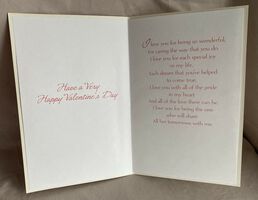 Have a Very
Happy Valentine's Day
I love you for being so wonderful,
for caring the way that you do
I love you for each special joy
in my life,
Each dream that you've helped
to come true
I love you with all of the pride
in my heart
And all of the love there can be,
I love you for being the one
who will share
All her tomorrows with me.